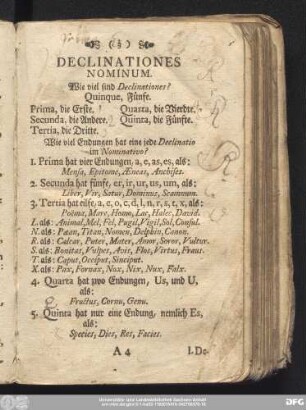 DECLINATIONES
NOMINUM.
Wie viel sind Declinationes?
Quinque, Fünfe.
Prima, die Erste. Quarta, die Vierdte.
Secunda, die Andere. Quinta, die Fünfte.
Tertia, die Dritte.
Wie viel Endungen hat eine jede Declinatio
im Nominativo?
1. Prima hat vier Endungen, a, e, as, es, als:
Mensa, Epitome, Æneas, Anchises.
2. Secunda hat fünfe, er, ir, ur, us, um, als:
Liber, Vir, Satur, Dominus, Scamnum.
3. Tertia hat eilfe, a, e, o, c, d, l, n, r, s, t, x, als:
Poëma, Mare, Homo, Lac, Halec, David.
L. als: Animal, Mel, Fel, Pugil, Vigil, Sol, Consul.
N. als: Pæan, Titan, Nomen, Delphin, Canon.
R. als: Calcar, Puter, Mater, Amor, Soror, Vultur.
S. als: Bonitas, Vulpes, Avis, Flos, Virtus, Fraus.
T. als: Caput, Occiput, Sinciput.
X. als: Pax, Fornax, Nox, Nix, Nux, Falx.
4. Quarta hat zwo Endungen, Us, und U,
als:
Fructus, Cornu, Genu.
5. Quinta hat nur eine Endung, nemlich Es,
als:
Species, Dies, Res, Facies.
A 4 I. De-